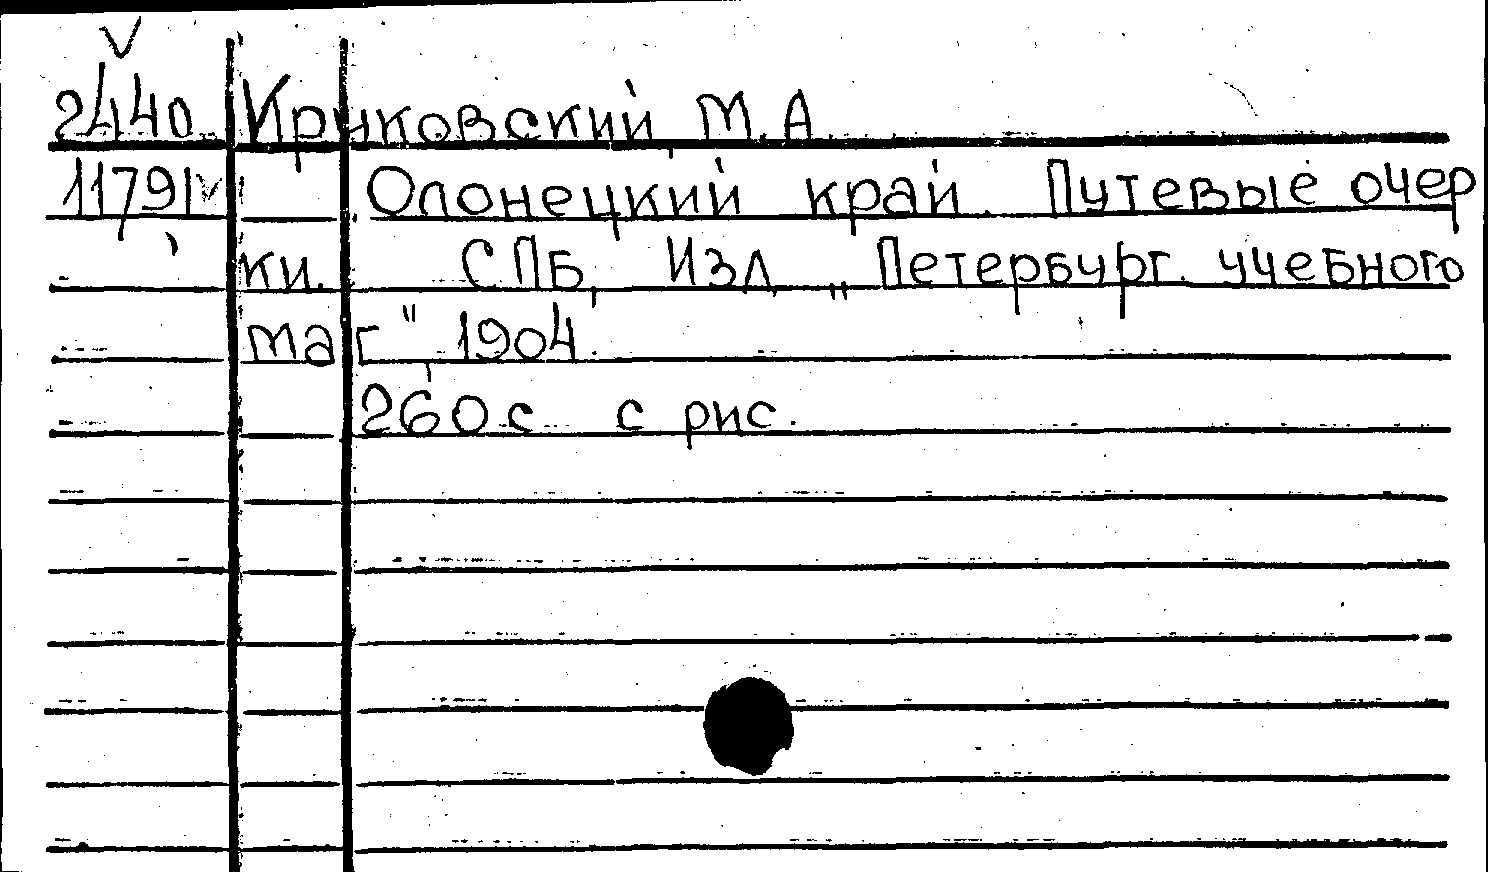 2440 Круковский, М.А.
11791 Олонецкий край. Путевые очер
ки. СПБ, Изд. „Петербург. учебного
маг", 1904.
260 с. с рис.